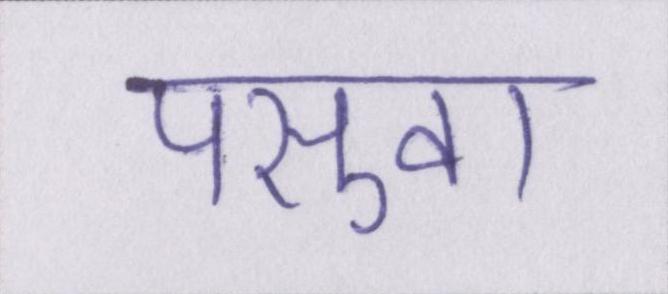 पसुवा